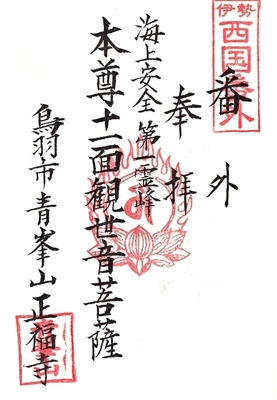 伊勢
西国番外
番外
奉拝
海上安全第一霊峰
本尊十一面観世音菩薩
鳥羽市青峯山正福寺